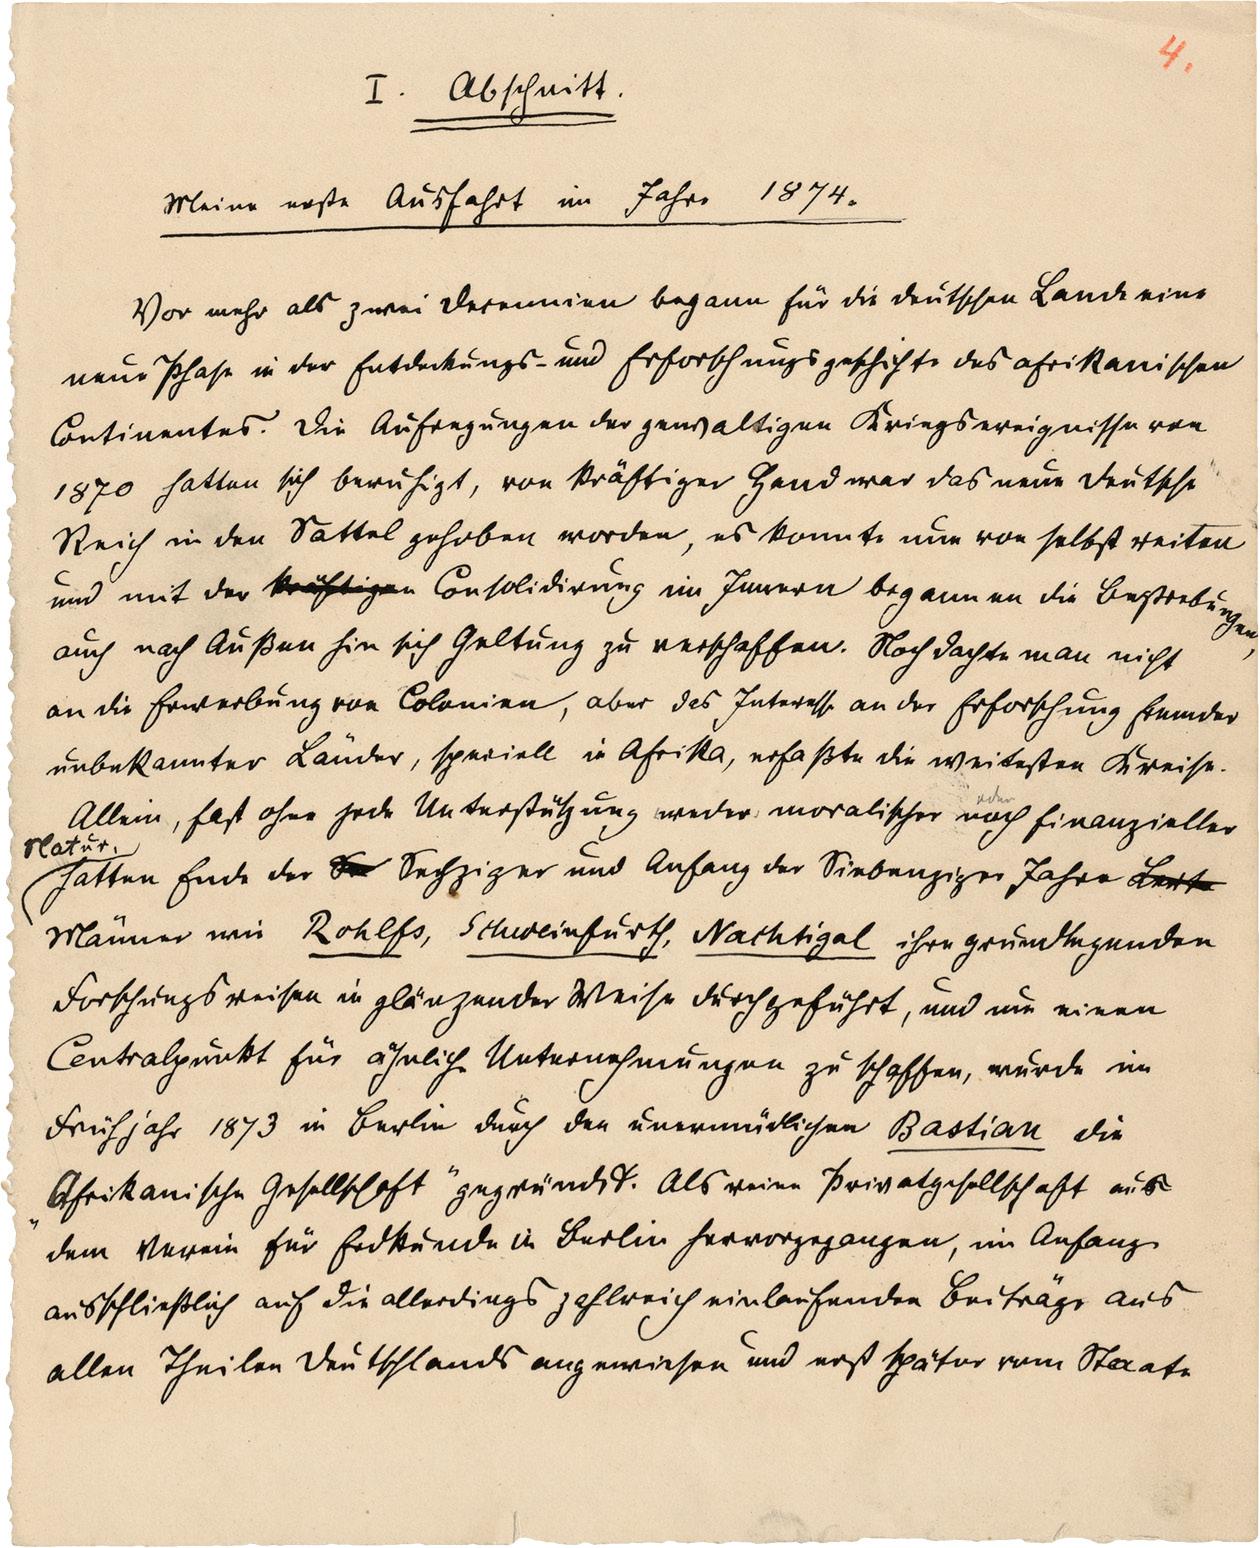 4.
I. Abschnitt.
Meine erste Ausfahrt im Jahre 1874.
Vor mehr als zwei Decennien begann für die deutschen Lande eine
neue Phase in der Entdeckungs- und Erforschungsgeschichte des afrikanischen
Continentes. Die Aufregungen der gewaltigen Kriegsereignisse von
1870 hatten sich beruhigt, von kräftiger Hand war das neue Deutsche
Reich in den Sattel gehoben worden, es konnte nun von selbst reiten
und mit der kräftigen Consolidirung im Innern begannen die Bestrebungen,
auch nach Außen hin sich Geltung zu verschaffen. Noch dachte man nicht
an die Erwerbung von Colonien, aber das Interesse an der Erforschung fremder
unbekannter Länder, speciell in Afrika, erfaßte die weitesten Kreise.
Allein, fast ohne jede Unterstützung weder moralischer noch oder finanzieller
Natur.
hatten Ende der Sechziger und Anfang der Siebenziger Jahre
Männer wie Rohlfs, Schweinfurth, Nachtigal ihre grundlegenden
Forschungsreisen in glänzender Weise durchgeführt, und um einen
Centralpunkt für ähnliche Unternehmungen zu schaffen, wurde im
Frühjahr 1873 in Berlin durch den unermüdlichen Bastian die
„Afrikanische Gesellschaft" gegründet. Als reine Privatgesellschaft aus
dem Verein für Erdkunde in Berlin hervorgegangen, im Anfang
ausschließlich auf die allerdings zahlreich einlaufenden Beiträge aus
allen Theilen Deutschlands angewiesen und erst später vom Staate